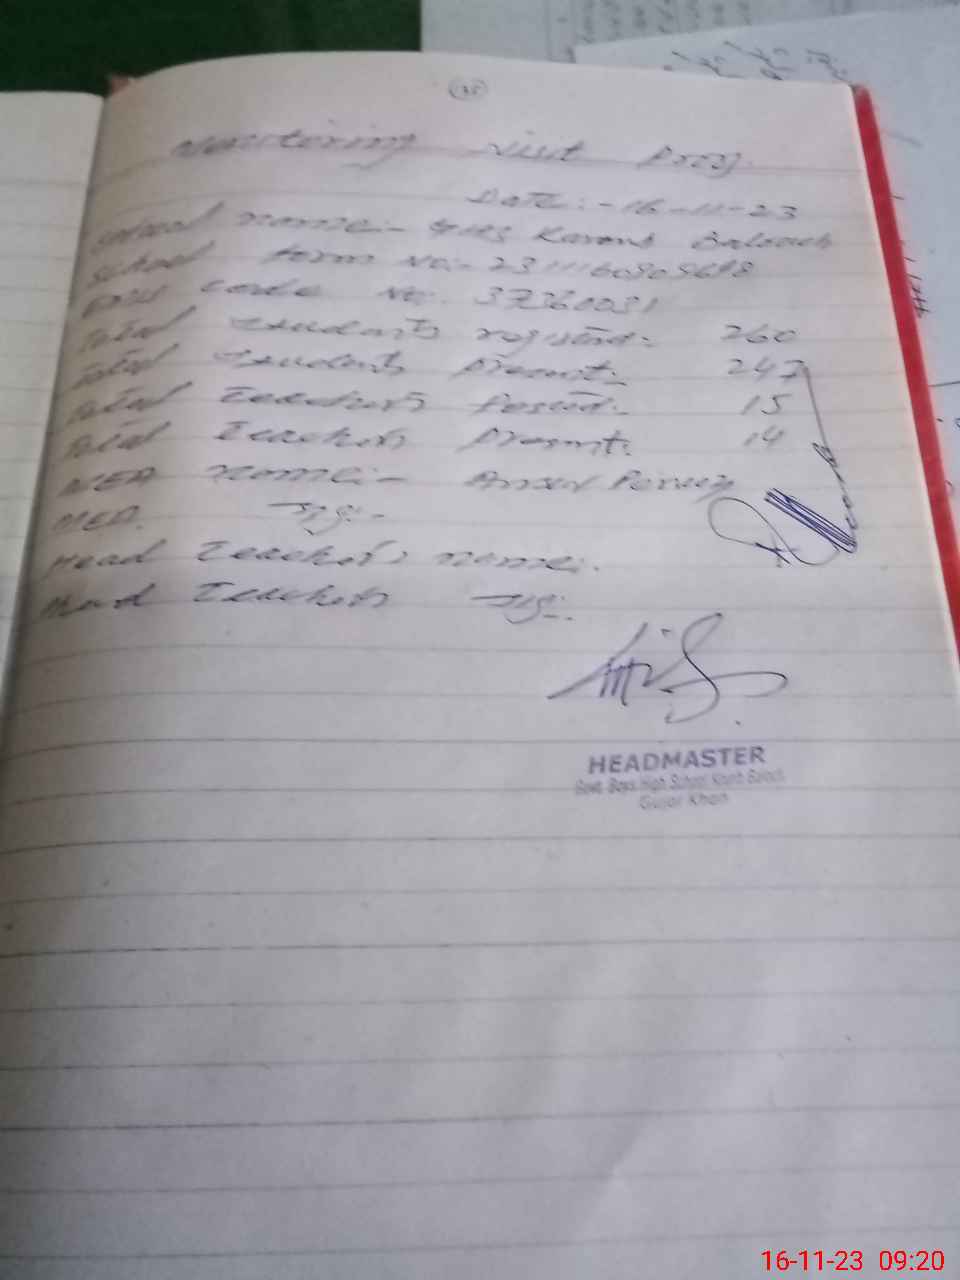 Monitering Visit Prog.
Date:- 16-11-23
School name:- Baloach
School form No:-
EMIS code No. 37360031
Total Students registerd:- 260
Total Students Present:- 247
Total Teachers Posted:- 15
Total Teachers Present:- 14
MEA name:-
MEA. Sig:-
Head Teacher's name:.
Head Teachers Sig:.
HEADMASTER
Govt. Boys High School
Gujar Khan
16-11-23 09:20